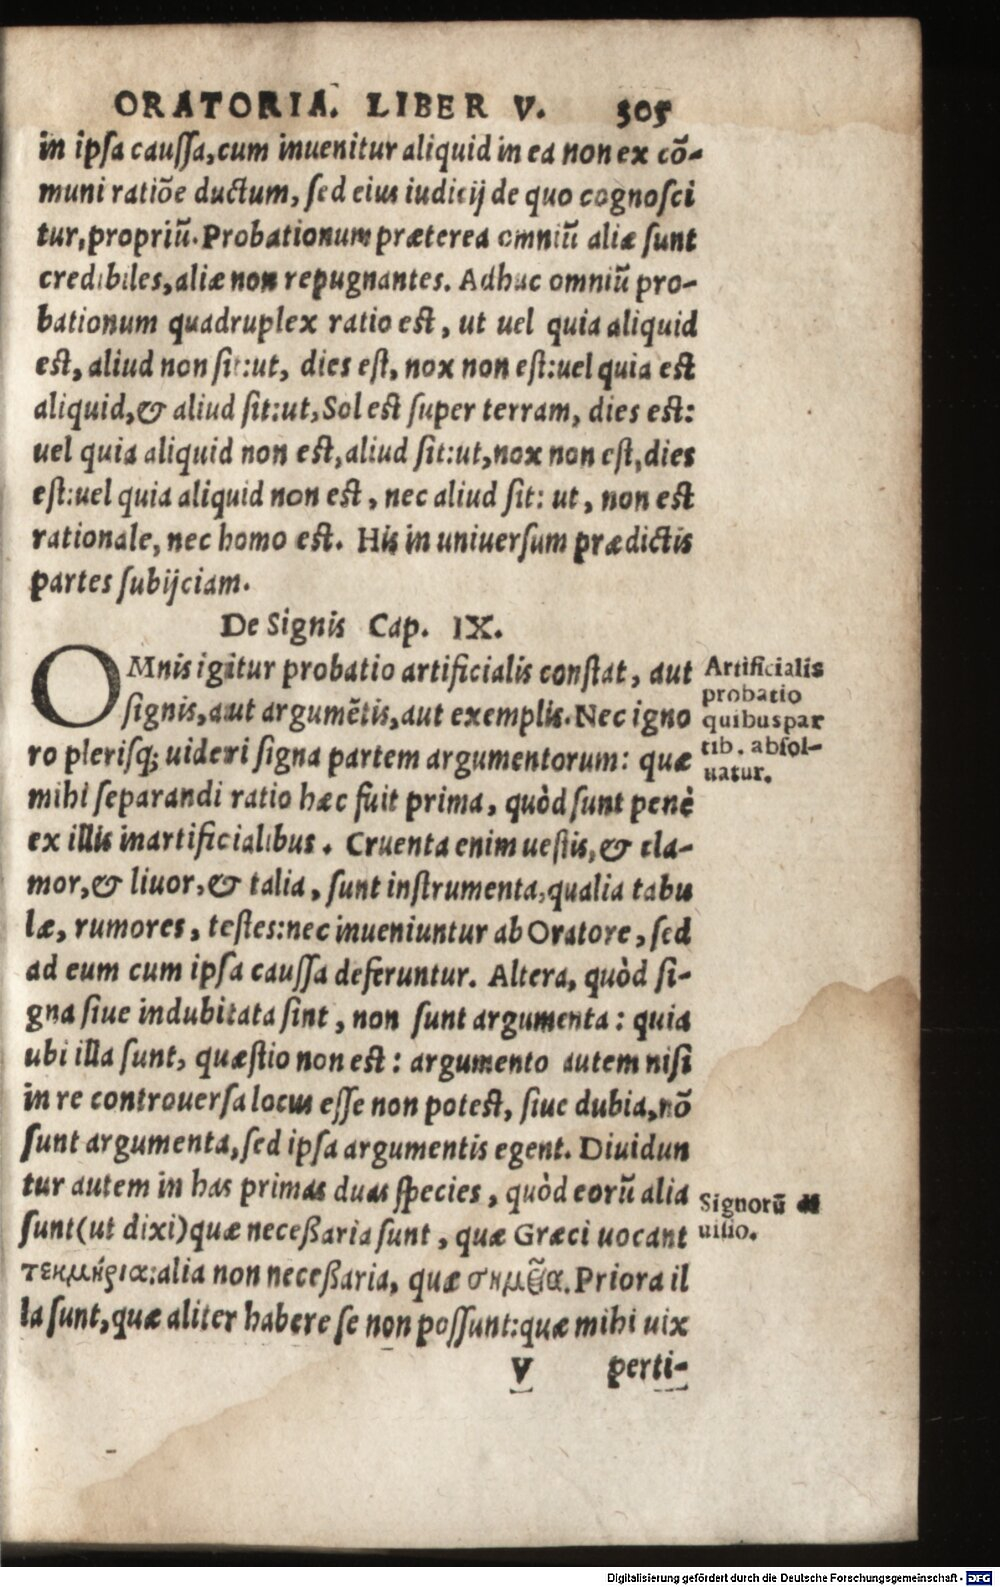 ORATORIA. LIBER V. 305
in ipſa cauſſa,cum inuenitur aliquid in ea non ex cō-
muni ratiōe ductum, ſed eius iudicij de quo cognoſci
tur,propriū.Probationum præterea omniū aliæ ſunt
credibiles,aliæ non repugnantes. Adhuc omniū pro-
bationum quadruplex ratio est, ut uel quia aliquid
est, aliud non ſit:ut, dies eſt, nox non eſt:uel quia est
aliquid,& aliud ſit:ut,Sol est ſuper terram, dies est:
uel quia aliquid non est,aliud ſit:ut,nox non eſt,dies
eſt:uel quia aliquid non est, nec aliud ſit: ut, non est
rationale, nec homo est. His in uniuerſum prædictis
partes ſubijciam.
De Signis Cap. IX.
OMnis igitur probatio artificialis conſtat, aut
ſignis,aut argumētis,aut exemplis.Nec igno
ro pleriſq; uideri ſigna partem argumentorum: quæ
mihi ſeparandi ratio hæc fuit prima, quòd ſunt penè
ex illis inartificialibus. Cruenta enim ueſtis,& cla-
mor,& liuor,& talia, ſunt inſtrumenta,qualia tabu
læ, rumores, teſtes:nec inueniuntur ab Oratore, ſed
ad eum cum ipſa cauſſa deferuntur. Altera, quòd ſi-
gna ſiue indubitata ſint, non ſunt argumenta: quia
ubi illa ſunt, quæſtio non est: argumento autem niſi
in re controuerſa locus eſſe non potest, ſiue dubia,nō
ſunt argumenta,ſed ipſa argumentis egent. Diuidun
tur autem in has primas duas ſpecies, quòd eorū alia
ſunt(ut dixi)quæ neceßaria ſunt, quæ Græci uocant
τεκμήρια:alia non neceßaria, quæ σημεῖα.Priora il
la ſunt,quæ aliter habere ſe non poſſunt:quæ mihi uix
V perti-
Artificialis
probatio
quibuspar
tib. abſol-
uatur.
Signorū di
uiſio.
Digitalisierung gefördert durch die Deutsche Forschungsgemeinschaft - DFG